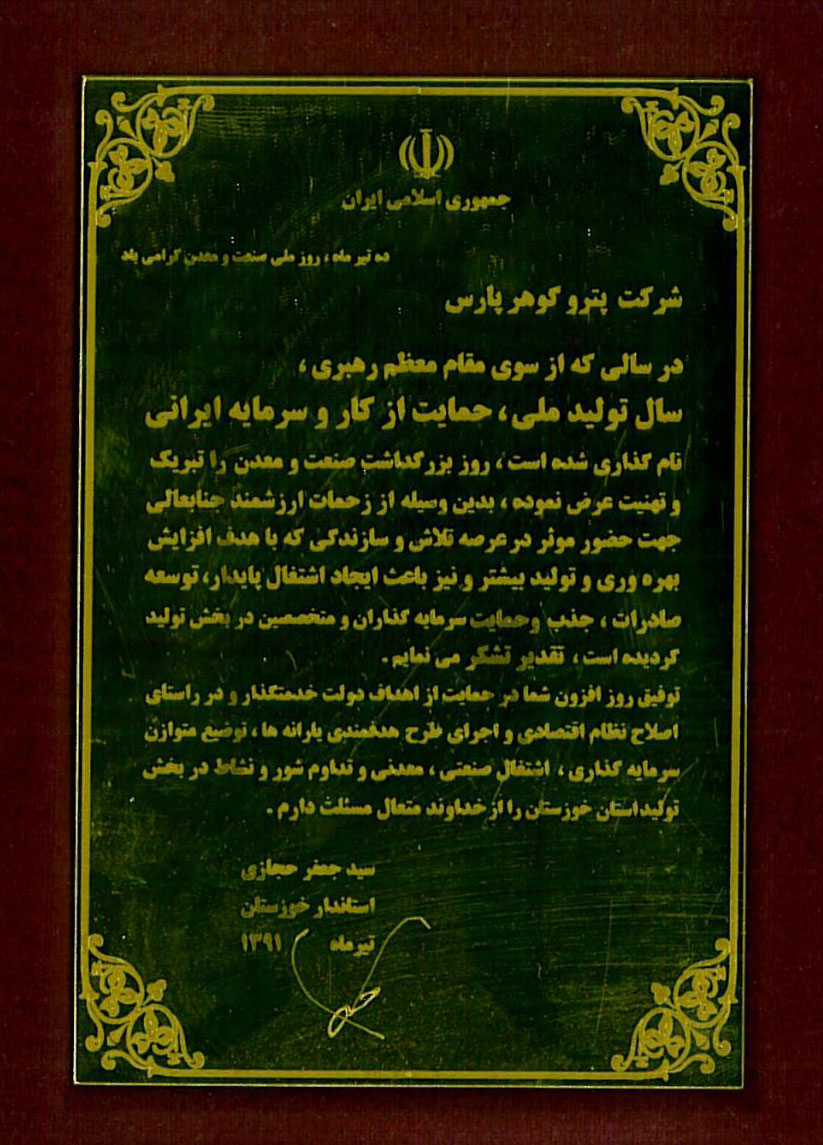 جمهوری اسلامی ایران
ده تیر ماه ، روز ملی صنعت و معدن گرامی باد
شرکت پترو گوهر پارس
در سالی که از سوی مقام معظم رهبری ،
سال تولید ملی ، حمایت از کار و سرمایه ایرانی
نام گذاری شده است ، روز بزرگداشت صنعت و معدن را تبریک
و تهنیت عرض نموده ، بدین وسیله از زحمات ارزشمند جنابعالی
جهت حضور موثر در عرصه تلاش و سازندگی که با هدف افزایش
بهره وری و تولید بیشتر و نیز باعث ایجاد اشتغال پایدار، توسعه
صادرات ، جذب وحمایت سرمایه گذاران و متخصصین در بخش تولید
گردیده است ، تقدیر تشکر می نمایم .
توفیق روز افزون شما در حمایت از اهداف دولت خدمتگذار و در راستای
اصلاح نظام اقتصادی و اجرای طرح هدفمندی یارانه ها ، توضیع متوازن
سرمایه گذاری ، اشتغال صنعتی ، معدنی و تداوم شور و نشاط در بخش
تولید استان خوزستان را از خداوند متعال مسئلت دارم .
سید جعفر حجازی
استاندار خوزستان
تیرماه ۱۳۹۱